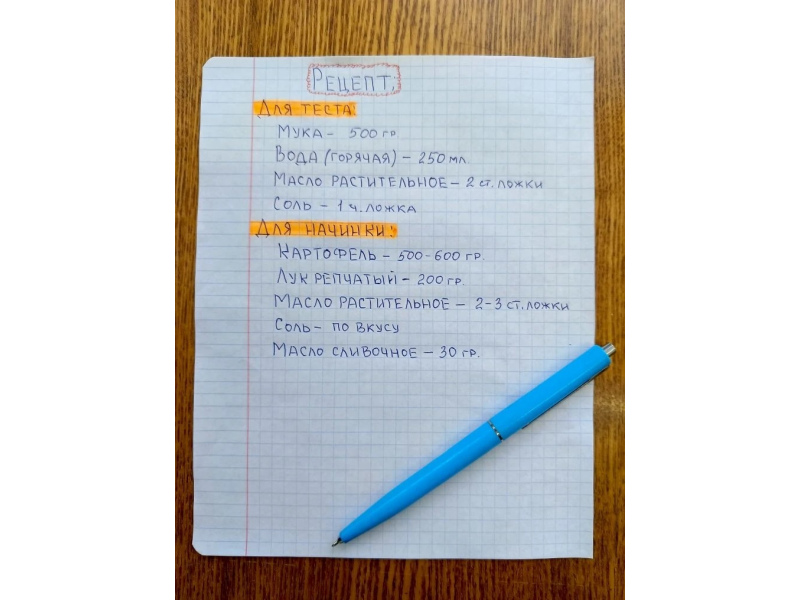 Рецепт:
Для теста:
Мука - 500 гр
Вода (горячая) - 250 мл
Масло растительное - 2 ст. ложки
Соль - 1 ч. ложка
Для начинки:
Картофель - 500-600 гр.
Лук репчатый - 200 гр.
Масло растительное - 2-3 ст. ложки
Соль - по вкусу
Масло сливочное - 30 гр.